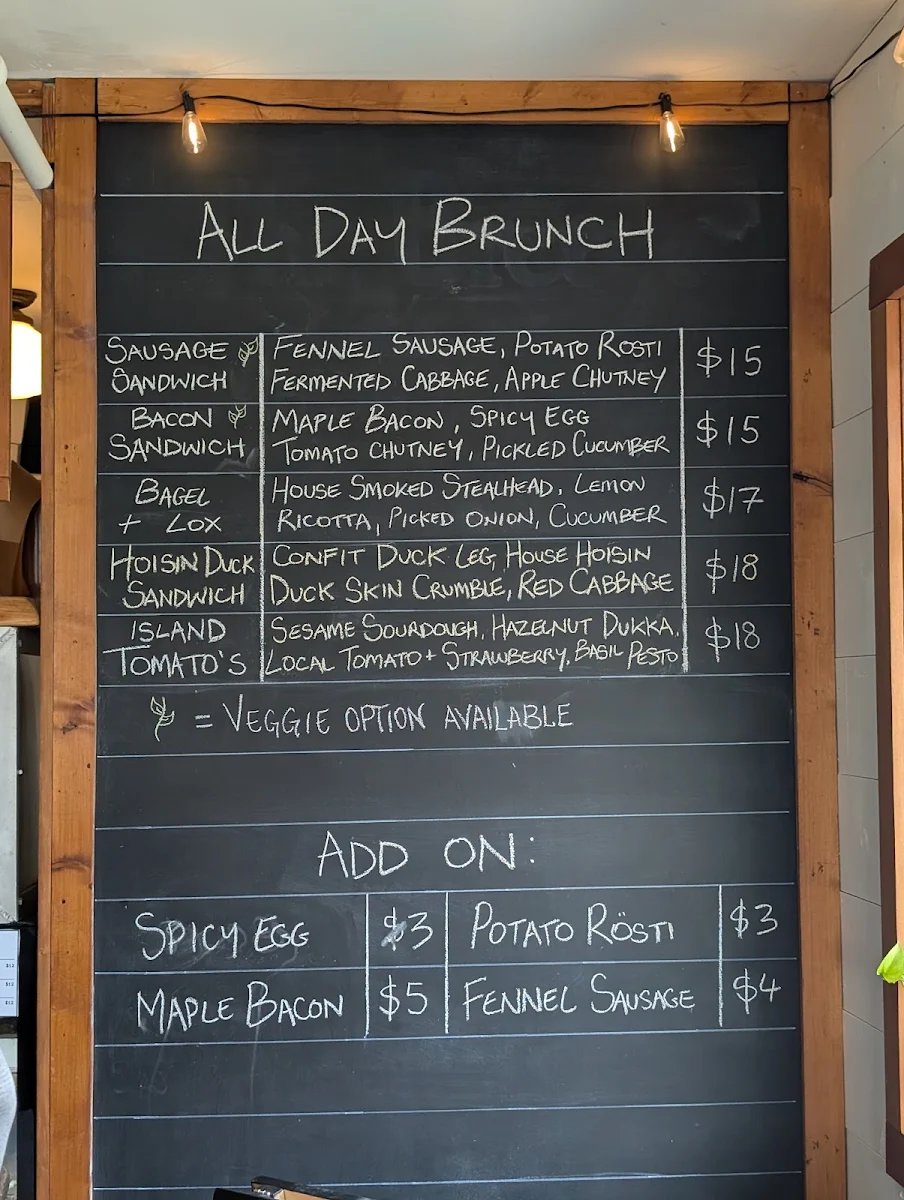 ALL DAY BRUNCH
SAUSAGE SANDWICH FENNEL SAUSAGE, POTATO ROSTI $15
FERMENTED CABBAGE, APPLE CHUTNEY
BACON SANDWICH MAPLE BACON, SPICY EGG $15
TOMATO CHUTNEY, PICKLED CUCUMBER
BAGEL + LOX HOUSE SMOKED STEALHEAD, LEMON $17
RICOTTA, PICKED ONION, CUCUMBER
HOISIN DUCK SANDWICH CONFIT DUCK LEG, HOUSE HOISIN $18
DUCK SKIN CRUMBLE, RED CABBAGE
ISLAND TOMATO'S SESAME SOURDOUGH, HAZELNUT DUKKA, $18
LOCAL TOMATO + STRAWBERRY, BASIL PESTO
= VEGGIE OPTION AVAILABLE
ADD ON:
SPICY EGG $3 POTATO RÖSTI $3
MAPLE BACON $5 FENNEL SAUSAGE $4